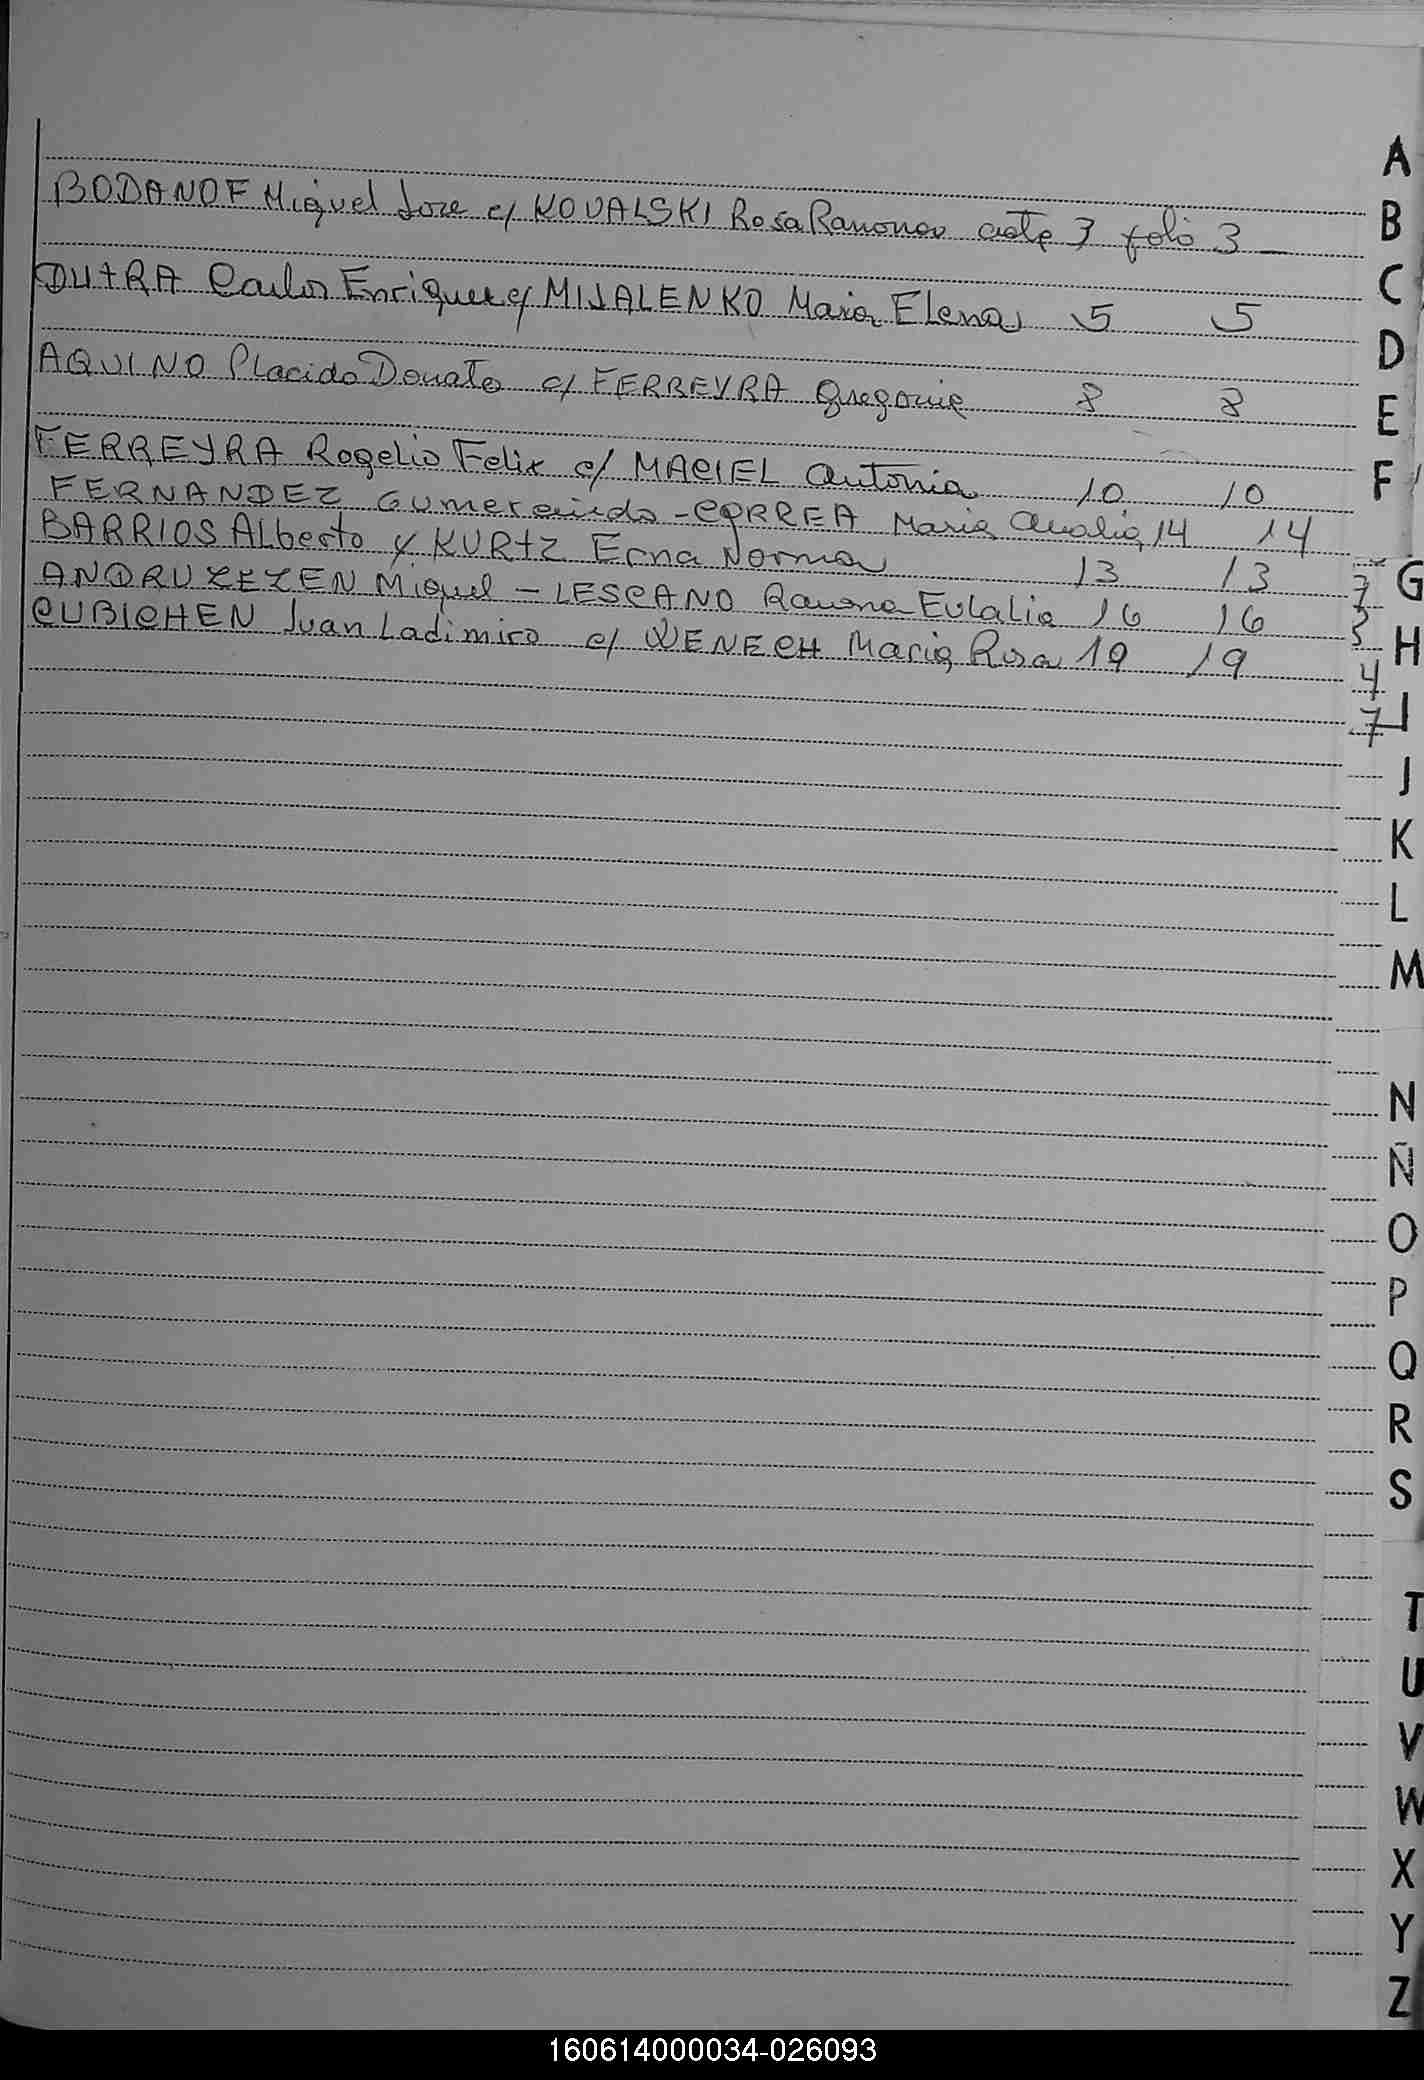 BODANOF Miguel Jose c/ KOVALSKI Rosa Ramona acta 3 folio 3
DUTRA Carlos Enrique c/ MIJALENKO Maria Elena 5 5
AQUINO Placido Donato c/ FERREYRA Gregoria 8 8
FERREYRA Rogelio Felix c/ MACIEL Antonia 10 10
FERNANDEZ Gumercindo - CORREA Maria Analia 14 14
BARRIOS Alberto y KURTZ Erna Norma 13 13
Miguel - LESCANO Ramona Eulalia 16 16
CUBICHEN Juan Ladimiro c/ WENECH Maria Rosa 19 19
A
B
C
D
E
F
G
H
I
J
K
L
M
N
Ñ
O
P
Q
R
S
T
U
V
W
X
Y
Z
7
3
4
7
160614000034-026093